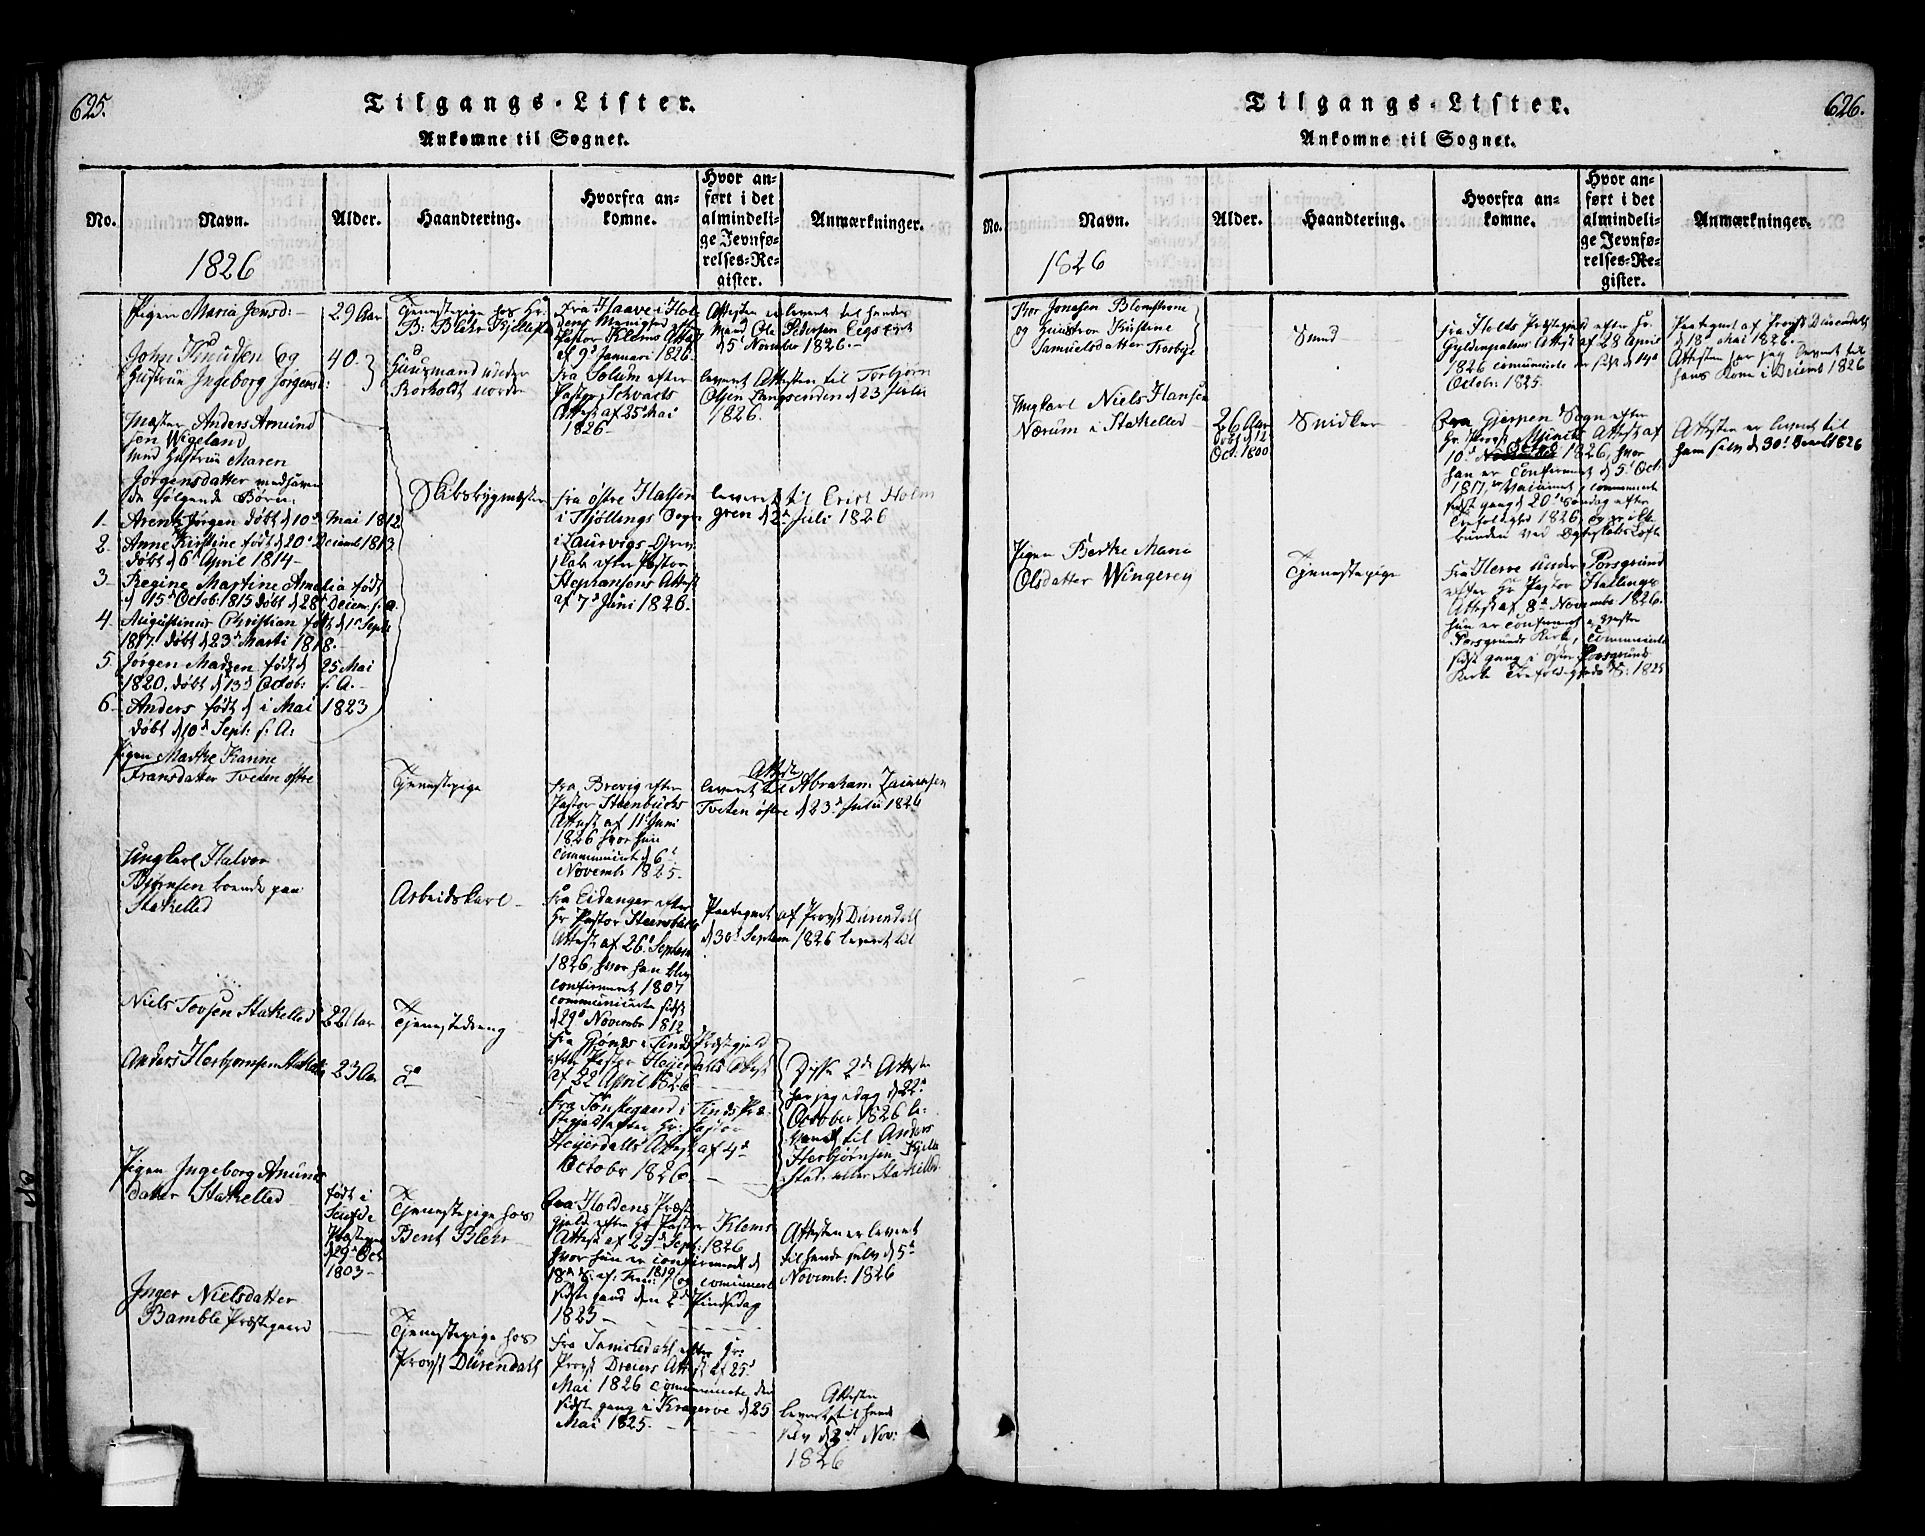 625.
Tilgangs-Lister.
Ankomne til Sognet.
No.
Navn.
Alder.
Haandtering.
Hvorfra an-
komne.
Hvor an-
ført i det
almindeli-
ge Jevnfø-
relses-Re-
gister.
Anmærkninger.
1826
Pigen Maria Jensd:
29 Aar
Tjenestepige hos Hr.
B: Blehr
fra Haave i Hol-
dens Menighed efter
Pastor Klems Attest
af 9d Januari 1826.
Attesten er leveret til hendes
Mand Ole Pedersen
d 5 November 1826.
John Knudsen og
Hustrue Ingeborg Jørgensd:
40
Huusmand under
Rorholdt nordre
fra Solum efter
Pastor Schvachs
Attest af 25 Mai
1826
leveret Attesten til Torbjørn
Olsen Langsenden d 23 Julii
1826.
Mester Anders Amund
sen Wigeland
med Hustrue Maren
Jørgensdatter medhavende
de følgende Børn:
Skibsbygmester
fra østre Halsen
i Tjøllings Sogn
i Laurvigs Grev
skab efter Pastor
Stephansons Attest
af 7d Juni 1826.
leveret til Erich Holm
gren d 2d Juli 1826
1. Arent Jørgen døbt d 10d Mai 1812
2. Anne Kirstine født d 20d Decemb 1813
døbt d 6d April 1814
3. Regine Martine Amalia født
d 15d Octob: 1815 døbt d 28d Decem: s. a.
4. Augustinus Christian født d 1d Sept:
1817. døbt d 23d Marti 1818.
5. Jørgen Madsen født d 25 Mai
1820. døbt d 13d Octob: s. A.
6. Anders født d i Mai 1823
døbt d 10d Sept: s: A:
Pigen Marthe Karine
Fransdatter Tveten østre
Tjenestepige
fra Brevig efter
Pastor Steenbuchs
Attest af 11 Juni
1826 hvor hun
communicerte d 6d
Novembr 1825.
Attesten
leveret til Abraham Zacariasen
Tveten østre d 23d Julii 1826
Ungkarl Halvor
Bjørnsen boende paa
Stakelled
Arbeidskarl
fra Eidanger efter
Hr Pastor Steenbuchs
Attest af 26d Septem
1826, hvor han blev
confirmeret 1807
communicerte sidst
d 29d Novembr 1812
Paategnet af Provst Dürendahl
d 30d Septem 1826 leveret til
Niels Tovsen Stakelled
22 Aar
Tjenestedreng
fra Gjønds i Tinds Præstegjeld
efter Pastor Heijerdalls Attest
af 22 April 1826
Anders Herbjørnsen Stakelled
23 Aar
do
fra Tønstegaard i Tinds Præ-
stegjeld efter Hr: Pastor
Heijerdalls Attest af 4d
October 1826
Disse 2de Attester
har jeg i dag d 22d
October 1826 le-
veret til Anders
Herbjørnsen
Stad eller Stakelled
Pigen Ingeborg Amunds
datter Stakelled
født i
Præstegj
d 29d Oct
1803
Tjenestepige hos
Bent Blehr
fra Holdens Præste
gjeld efter Hr Pastor Klems
Attest af 25d Sept: 1826
hvor hun er confirmeret d
18d S. af Trin: 1819 og comunicert
sidste gang den 2d Pindsedag
1823
Attesten er leveret
til hende selv d 5d
Novemb: 1826
Inger Nielsdatter
Bamble Præstegaard
Tjenestepige hos
Provst Dürendahl
fra Sannikedahl efter Hr:
Provst Dreiers Attest af 25d
Mai 1826 communicerte den
sidste gang i Kragerøe d 25
Mai 1825.
Attesten
leveret til hende
selv d 2d Nov:
1826
626.
Tilgangs-Lister.
Ankomne til Sognet.
No.
Navn.
Alder.
Haandtering.
Hvorfra an-
komne.
Hvor an-
ført i det
almindeli-
ge Jevnfø-
relses-Re-
gister.
Anmærkninger.
1826
Jonasen Blomstrøm
og Hustroe Kristine
Samuelsdatter Trosbye
Smed
fra Holts Præstegjeld efter Hr.
Gyldenpalms Attest af 28 April
1826 comunicerte der sidst d 14d
Octob: 1825.
Paategnet af Provst Dürendahl
d 18d Mai 1826.
Attesten har jeg leveret til
hans Kone i Decemb 1826
Ungkarl Niels Hansen
Nærum i Stakelled
26 Aar
døbt d 12
Oct: 1800
Snidker
fra Gjerpen Sogn efter
Hr. Provst Münchs Attest af
10d October 1826, hvor
han er confirmeret d 5d Oct:
1817, Vaccineret, communicerte
sidst gang d 20d Søndag efter
Trefoldighed 1826,
Attesten er leveret til
ham selv d 30d Decmb 1826
Pigen Berthe Maria
Olsdatter Wingerej
Tjenestepige
fra Herre under Porsgrund
efter Hr Pastor Hallings
Attest af 8d Novembr 1826.
hun er confirmeret i Westre
Porsgrunds Kirke, communicerte
sidst gang i østre Porsgrunds
Kirke 1825